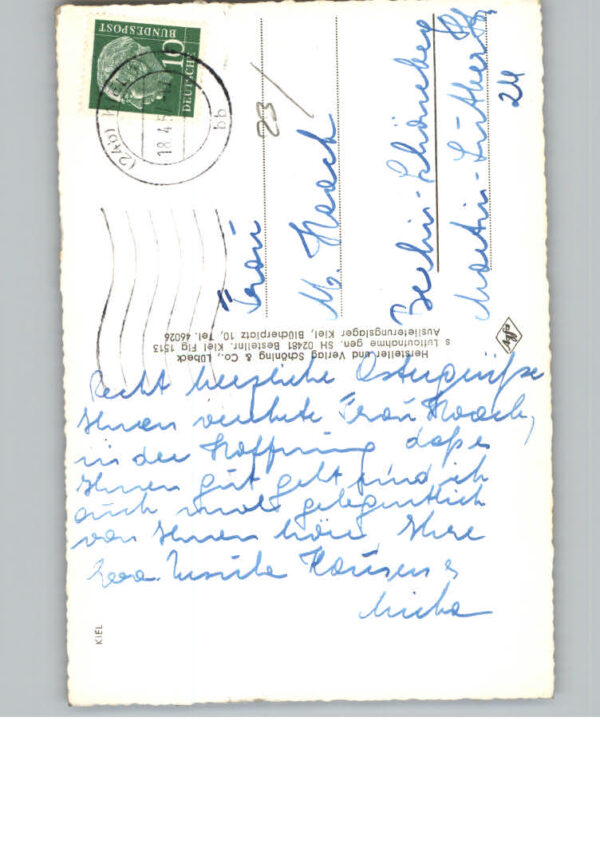 Recht herzliche Ostergrüße
Ihnen verehrte Frau Noack,
in der Hoffnung daß es
Ihnen gut geht und ich
auch mal gelegentlich
von Ihnen höre, Ihre
Ursula Hansen &
Micha
Frau
M. Noack
Berlin-Schöneberg
Martin-Luther Str
24
23
DEUTSCHE
BUNDESPOST
10
(24b) KIEL
18.4.5
bb
Hersteller und Verlag Schöning & Co., Lübeck
s Luftaufnahme gen. SH 02481 Bestellnr. Kiel Flg 1513
Auslieferungslager Kiel, Blücherplatz 10, Tel. 46026
KIEL